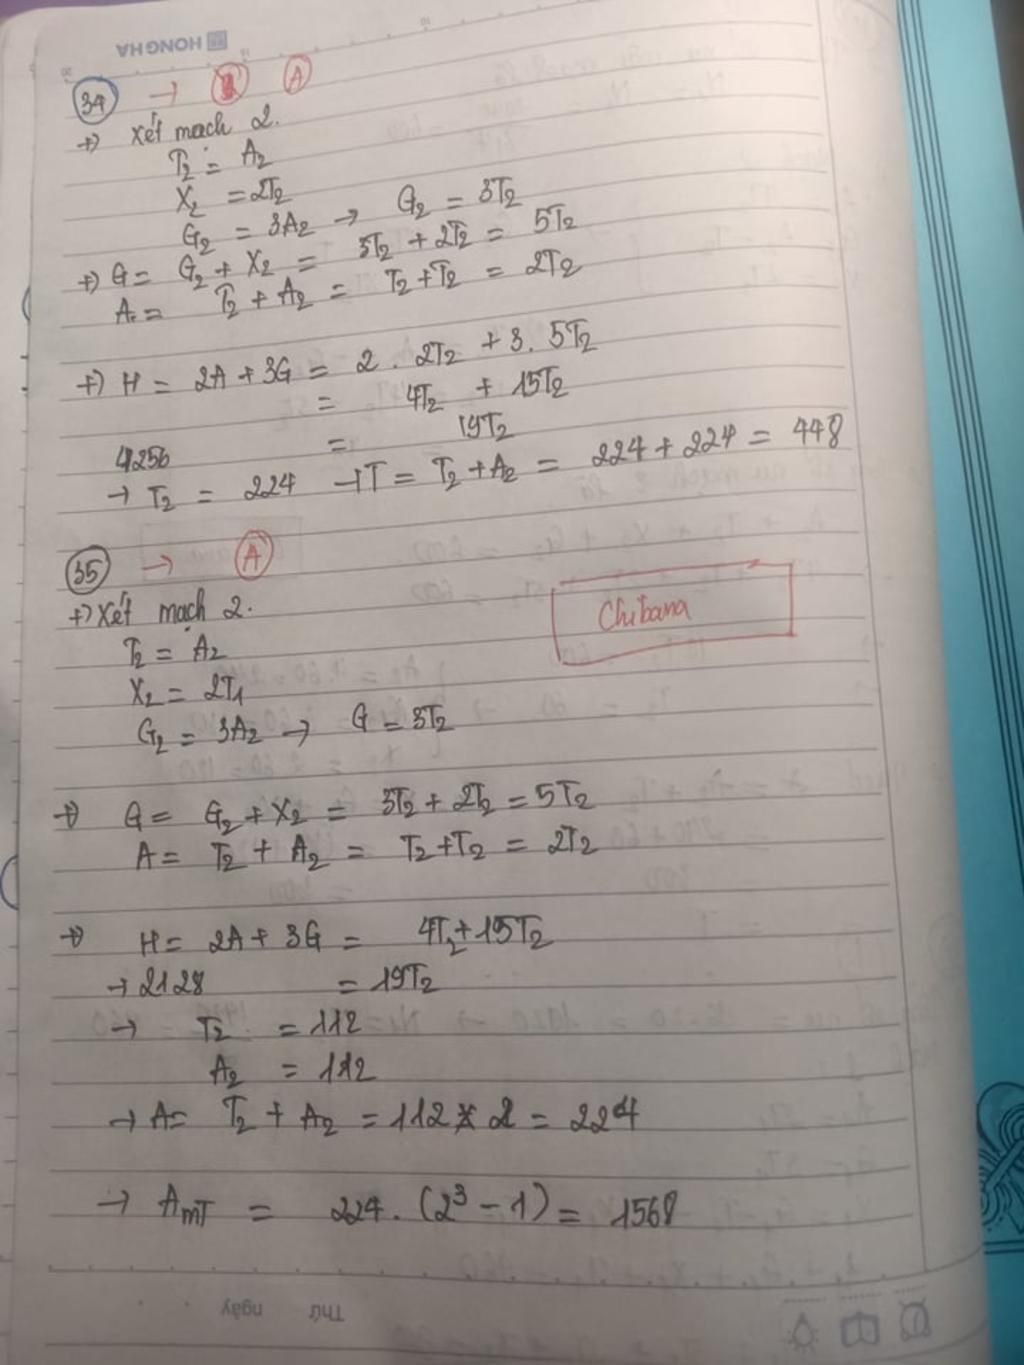 HONG HA
34 → A
+) Xét mạch 2.
T₂ = A₂
X₂ = 2T₂
G₂ = 3A₂ → G₂ = 3T₂
+) G = G₂ + X₂ = 3T₂ + 2T₂ = 5T₂
A = T₂ + A₂ = T₂ + T₂ = 2T₂
+) H = 2A + 3G = 2 . 2T₂ + 3. 5T₂
= 4T₂ + 15T₂
4256 = 19T₂
→ T₂ = 224 → T = T₂ + A₂ = 224 + 224 = 448
35 → A
+) Xét mạch 2.
T₂ = A₂
X₂ = 2T₁
G₂ = 3A₂ → G = 3T₂
Chibana
+) G = G₂ + X₂ = 3T₂ + 2T₂ = 5T₂
A = T₂ + A₂ = T₂ + T₂ = 2T₂
+) H = 2A + 3G = 4T₂ + 15T₂
→ 2128 = 19T₂
→ T₂ = 112
A₂ = 112
→ A = T₂ + A₂ = 112 x 2 = 224
→ AmT = 224. (2³ - 1) = 1568
Thứ ngày